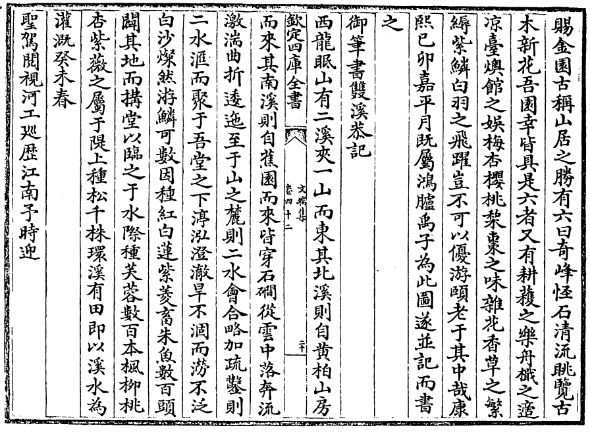 賜金園古稱山居之勝有六曰奇峰怪石清流眺覽古
木新花吾園幸皆具是六者又有耕穫之樂舟檝之適
凉臺燠館之娯梅杏櫻桃梨棗之味雜花香草之繁
縟紫鱗白羽之飛躍豈不可以優游頤老于其中哉康
熙己卯嘉平月既屬鴻臚禹子為此圖遂並記而書
之
御筆書雙溪恭記
西龍眠山有二溪夾一山而東其北溪則自黄柏山房
欽定四庫全書
文端集
卷四十二
二十
而來其南溪則自蕉園而來皆穿石磵從雲中落奔流
激湍曲折逶迤至于山之麓則二水會合略加疏鑿則
二水滙而聚于吾堂之下渟泓澄澈旱不涸而澇不泛
白沙燦然游鱗可數因種紅白蓮紫菱畜朱魚數百頭
闢其地而搆堂以臨之于水際種芙蓉數百本楓柳桃
杏紫薇之屬于隄上種松千株環溪有田即以溪水為
灌溉癸未春
聖駕閲視河工廵歴江南予時迎